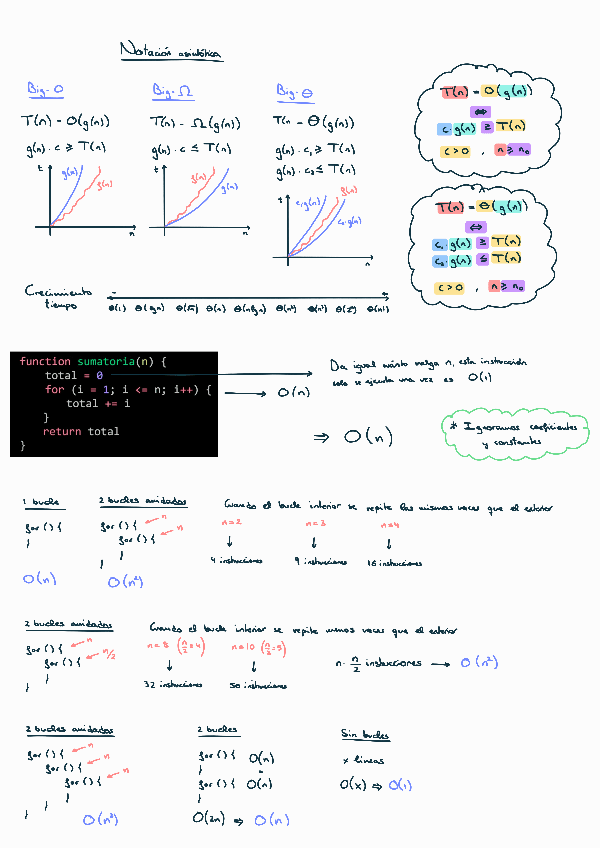 Notación asintótica
Big-O
T(n) = O(g(n))
g(n) · c ≥ T(n)
t
g(n)
f(n)
n
Big-Ω
T(n) = Ω(g(n))
g(n) · c ≤ T(n)
t
f(n)
g(n)
n
Big-Θ
T(n = Θ(g(n))
g(n) · c₁ ≥ T(n)
g(n) · c₂ ≤ T(n)
t
c₁g(n)
f(n)
c₂·g(n)
n
T(n) = O(g(n))
⇔
c·g(n) ≥ T(n)
c>0 , n≥n₀
T(n) = Θ(g(n))
⇔
c₁·g(n) ≥ T(n)
c₂·g(n) ≤ T(n)
c>0 , n≥n₀
Crecimiento
tiempo
- +
Θ(1) Θ(lgn) Θ(√n) Θ(n) Θ(nlgn) Θ(n²) Θ(n³) Θ(2ⁿ) Θ(n!)
function sumatoria(n) {
total = 0
for (i = 1; i <= n; i++) {
total += i
}
return total
}
Da igual cuánto valga n, esta instrucción
solo se ejecuta una vez es O(1)
O(n)
⇒ O(n)
* Ignoramos coeficientes
y constantes
1 bucle
for () {
}
O(n)
2 bucles anidados
for () { n
for () { n
}
}
O(n²)
Cuando el bucle interior se repite las mismas veces que el exterior
n=2 n=3 n=4
4 instrucciones 9 instrucciones 16 instrucciones
2 bucles anidados
for () { n
for () { n/2
}
}
Cuando el bucle interior se repite menos veces que el exterior
n=8 (n/2=4) n=10 (n/2=5)
32 instrucciones 50 instrucciones
n · n/2 instrucciones → O(n²)
2 bucles anidados
for () { n
for () { n
for () { n
}
}
}
O(n³)
2 bucles
for () { O(n)
}
for () { O(n)
}
O(2n) ⇒ O(n)
Sin bucles
x líneas
O(x) ⇒ O(1)